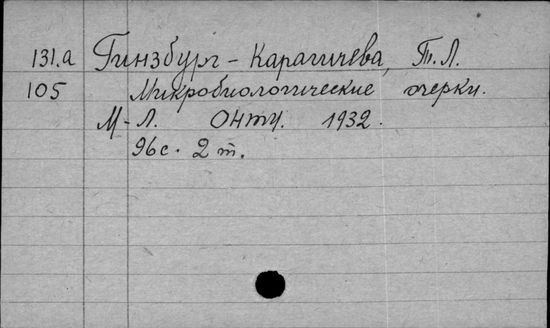 131.а Гинзбург-Карагичева, Т.Л.
105 Микробиологические очерки.
М-Л. ОНТИ. 1932.
96с. 2 т.